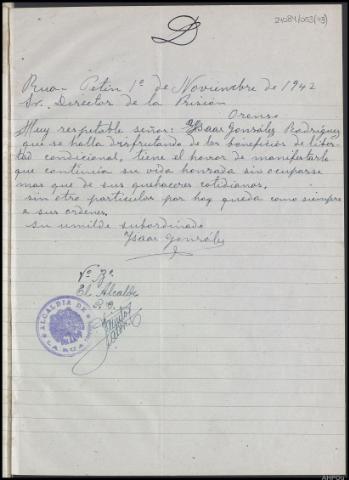 24084/003(43)
D
Rua-Petin 1º de Noviembre de 1942
Sr. Director de la Prisión
Orense
Muy respetable señor: Ysaac González Rodríguez
que se halla disfrutando de los beneficios de liber-
tad condicional, tiene el honor de manifestarle
que continúa su vida honrada sin ocuparse
mas que de sus quehaceres cotidianos.
sin otro particular por hoy queda como siempre
a sus ordenes.
su umilde subordinado
Ysaac González
Vº Bº
El Alcalde
P.O.
ALCALDIA DE
LA RUA
AHPOu